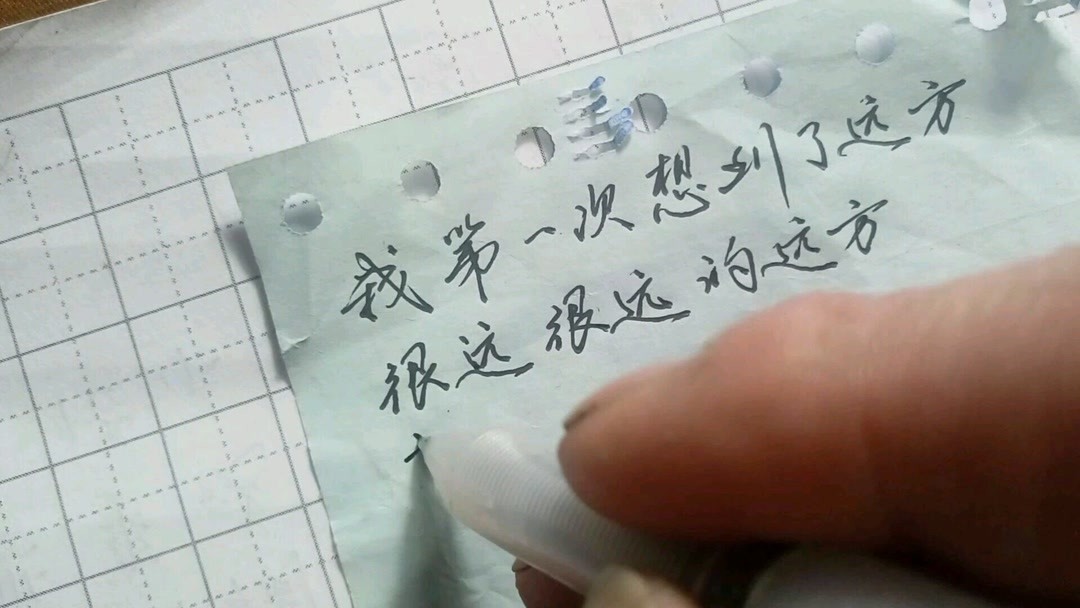 我第一次想到了远方
很远很远的远方